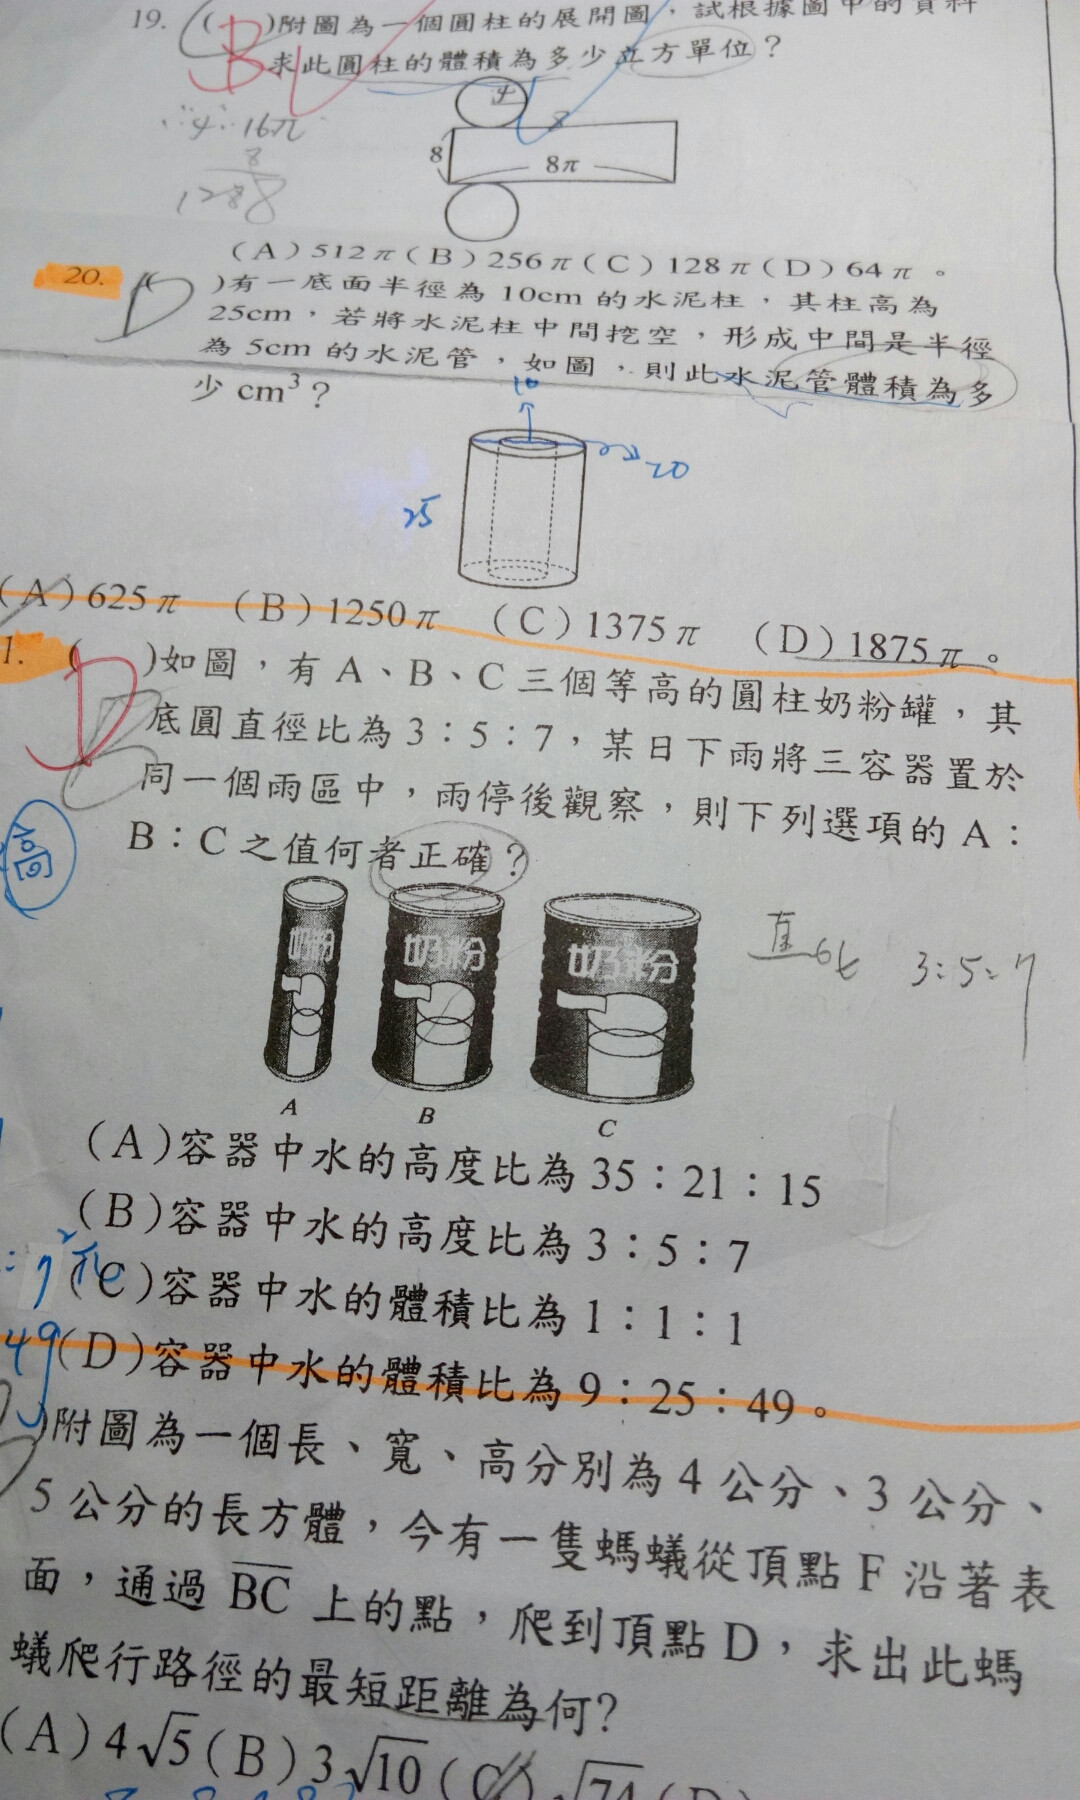 19. ( B )附圖為一個圓柱的展開圖，試根據圖中的資料
求此圓柱的體積為多少立方單位？
4
16π
8
128
8
8π
(A) 512π (B) 256π (C) 128π (D) 64π 。
20. ( D )有一底面半徑為 10cm 的水泥柱，其柱高為
25cm，若將水泥柱中間挖空，形成中間是半徑
為 5cm 的水泥管，如圖，則此水泥管體積為多
少 cm³？
10
20
25
(A) 625π (B) 1250π (C) 1375π (D) 1875π 。
1. ( D )如圖，有 A、B、C 三個等高的圓柱奶粉罐，其
底圓直徑比為 3：5：7，某日下雨將三容器置於
同一個雨區中，雨停後觀察，則下列選項的 A：
高
B：C 之值何者正確？
奶粉 奶粉 奶粉
直 比 3:5:7
A B C
(A)容器中水的高度比為 35：21：15
(B)容器中水的高度比為 3：5：7
: 7²π
(C)容器中水的體積比為 1：1：1
49
(D)容器中水的體積比為 9：25：49。
)附圖為一個長、寬、高分別為 4 公分、3 公分、
5 公分的長方體，今有一隻螞蟻從頂點 F 沿著表
面，通過 BC 上的點，爬到頂點 D，求出此螞
蟻爬行路徑的最短距離為何？
(A) 4√5 (B) 3√10 (C) √74 (D)